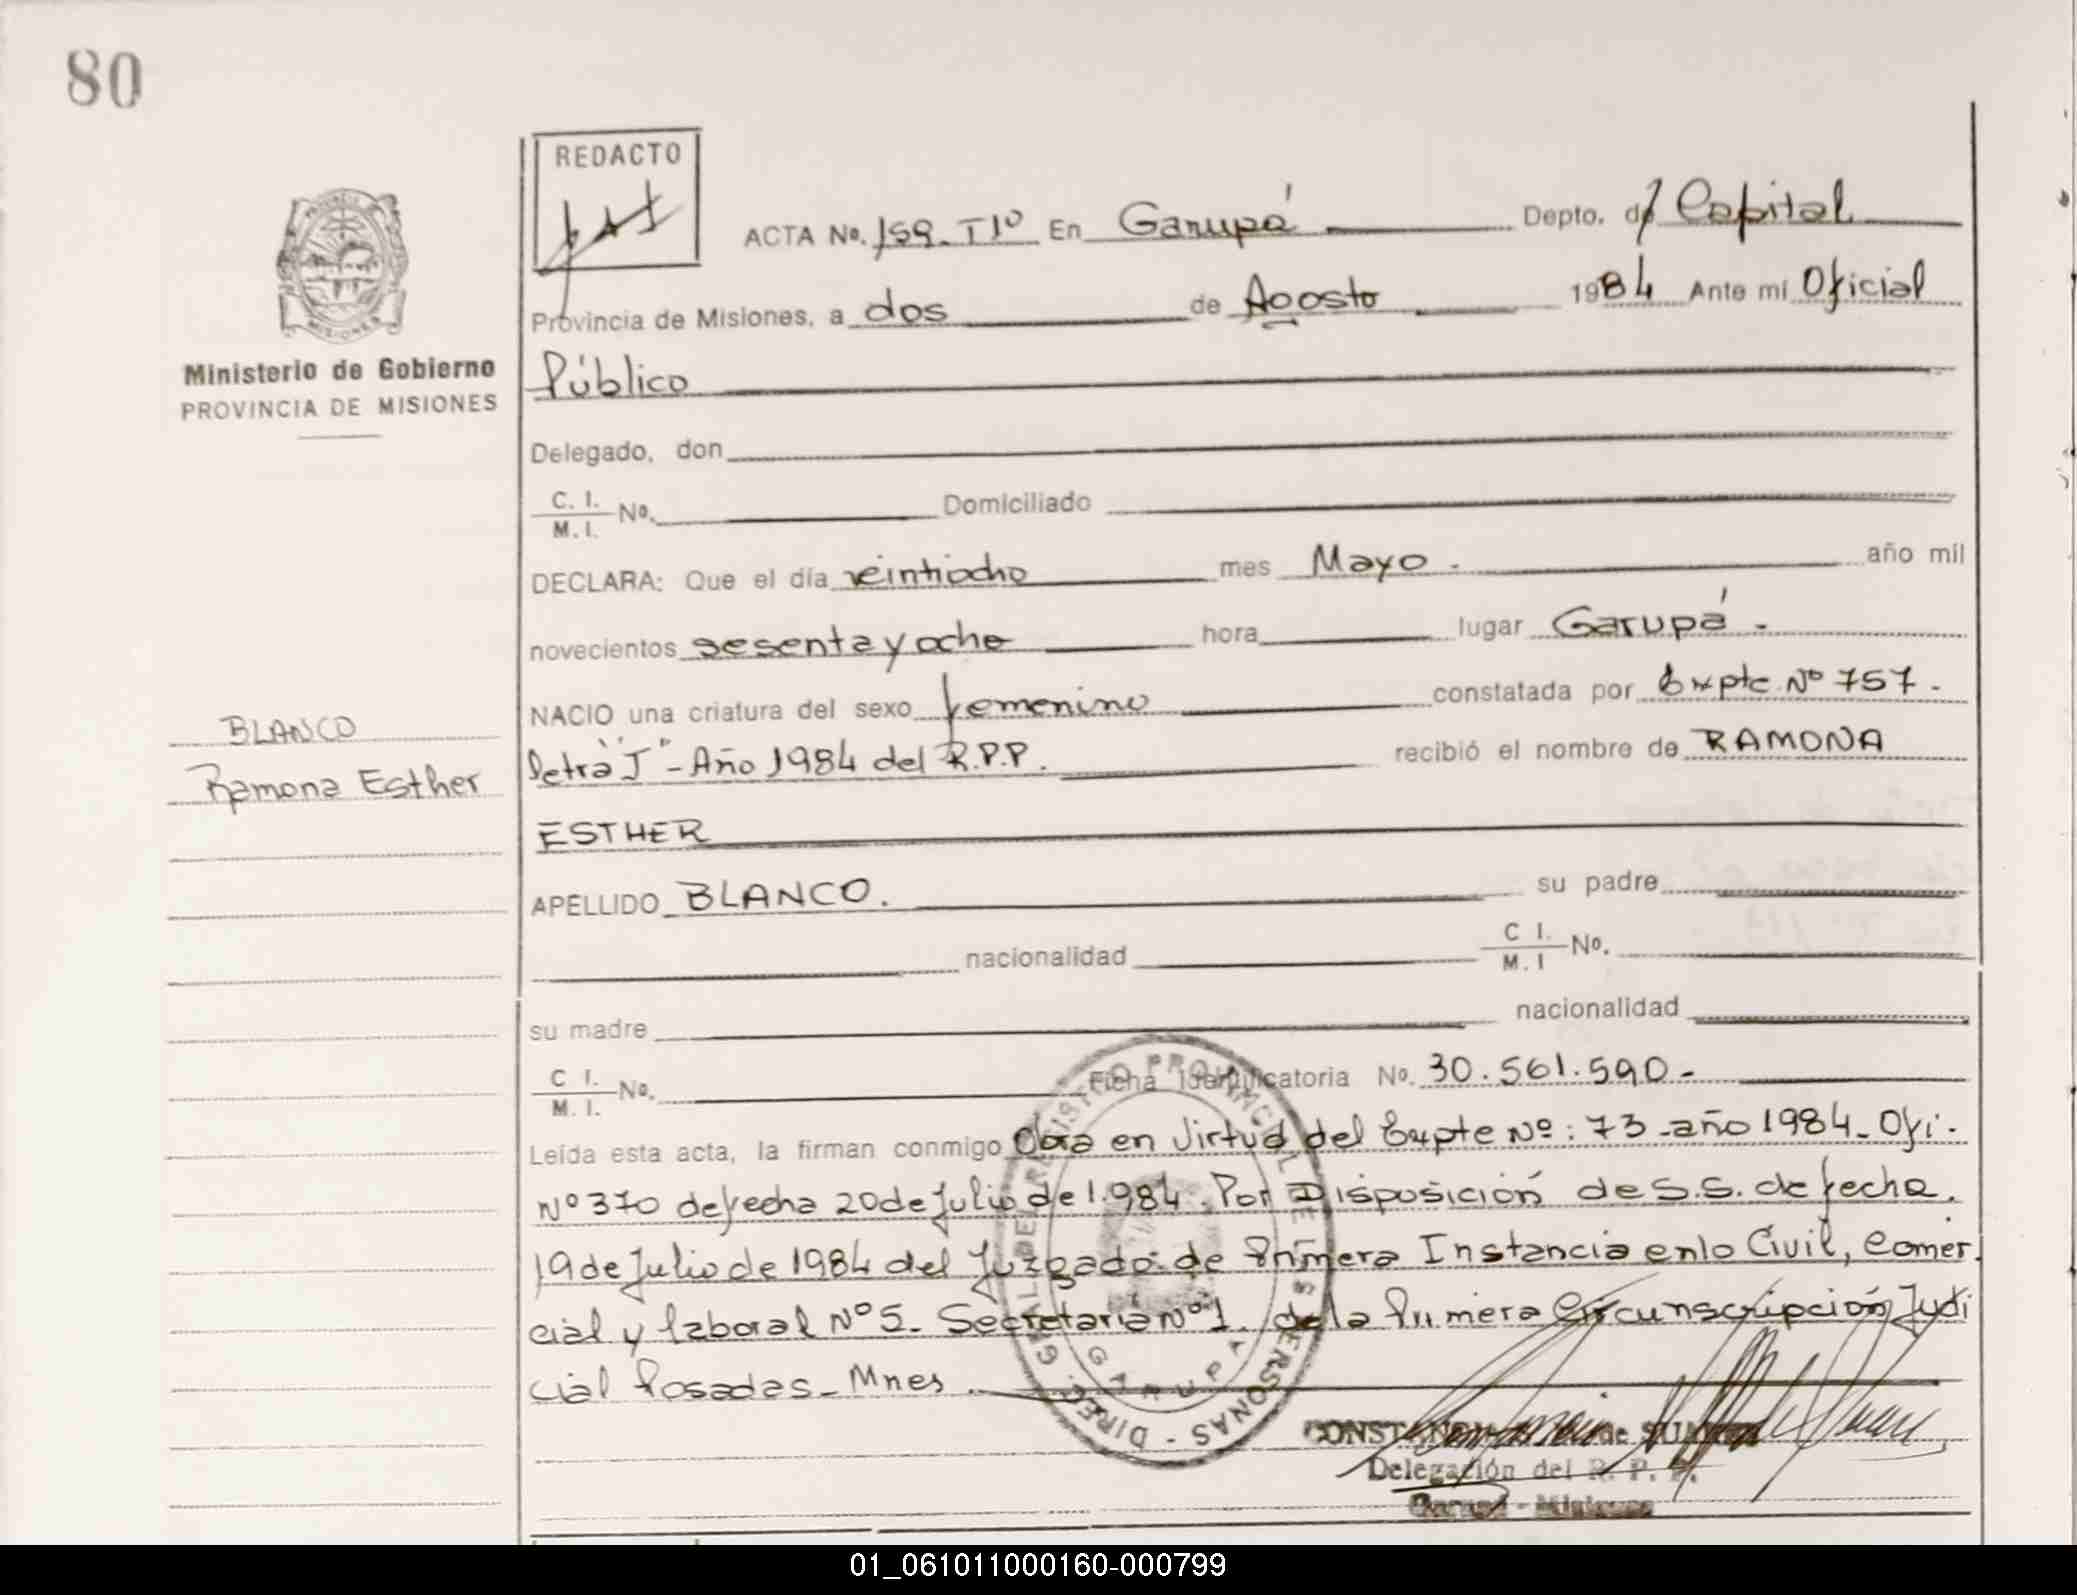 80
REDACTO
ACTA No. 159. T1º En Garupá Depto. d/ Capital
Provincia de Misiones, a dos de Agosto 1984 Ante mi Oficial
Público
Ministerio de Gobierno
PROVINCIA DE MISIONES
Delegado, don
C. I.
M. I. No. Domiciliado
DECLARA: Que el día veintiocho mes Mayo. año mil
novecientos sesenta y ocho hora lugar Garupá.
NACIO una criatura del sexo femenino constatada por Expte. Nº 757.
BLANCO
letra "J" - Año 1984 del R.P.P. recibió el nombre de RAMONA
Ramona Esther
ESTHER
APELLIDO BLANCO. su padre
nacionalidad C I.
M. I No.
su madre nacionalidad
C I.
M. I. No. Ficha Identificatoria No. 30.561.590.-
Leída esta acta, la firman conmigo Obra en virtud del Expte Nº: 73 - año 1984. Ofi.
Nº 370 de fecha 20 de Julio de 1.984. Por Disposición de S.S. de fecha.
19 de Julio de 1984 del Juzgado de Primera Instancia en lo Civil, Comer.
cial y laboral Nº 5. Secretaría Nº 1. de la Primera Circunscripción Judi
cial Posadas - Mnes.
DIREC. GRAL DE REGISTRO PROVINCIAL DE LAS PERSONAS
GARUPA
de
Delegación del R. P. P.
Garupá - Misiones
01_061011000160-000799